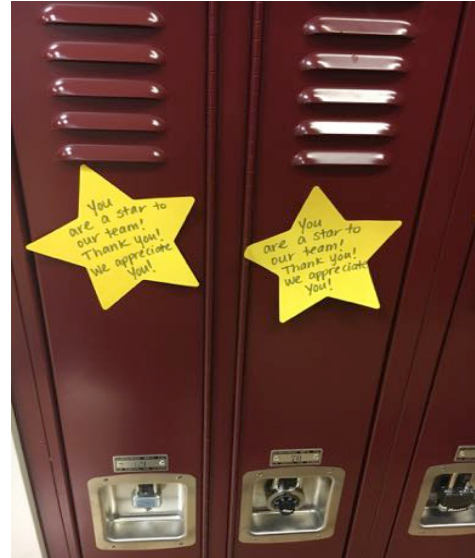 You
are a star to
our team!
Thank you!
We appreciate
You!
You
are a star to
our team!
Thank you!
We appreciate
You!